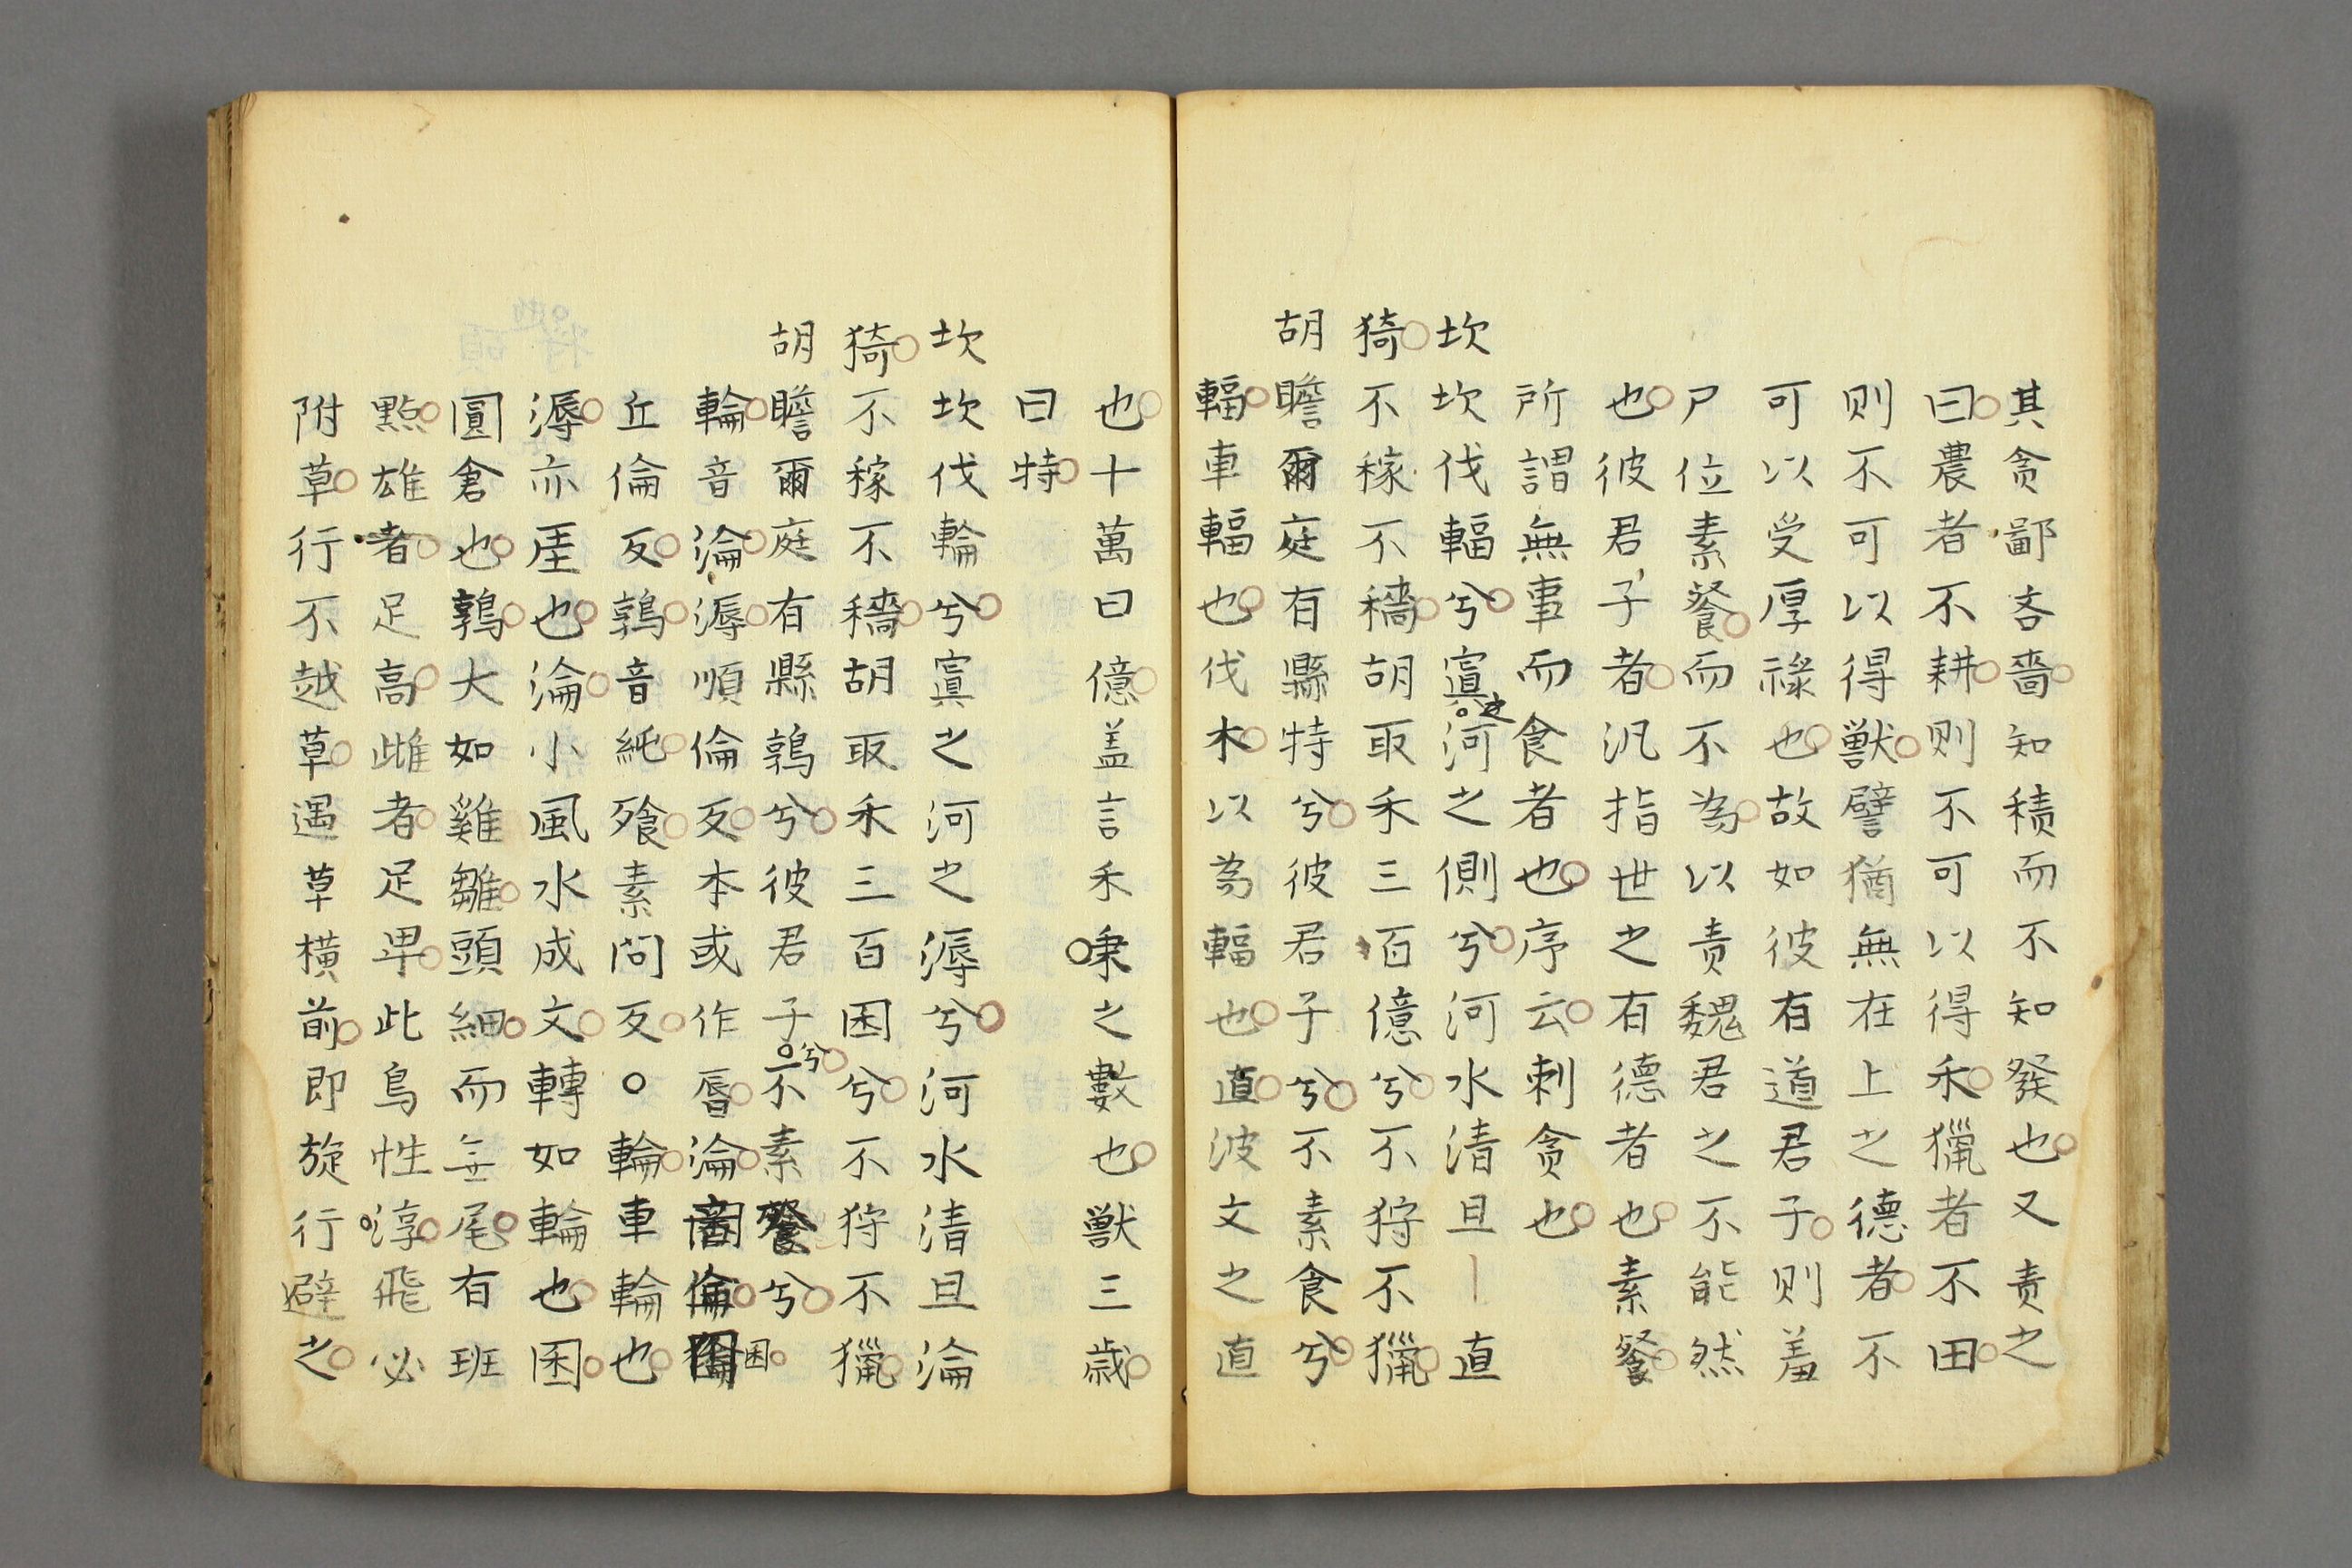 其贪鄙吝嗇知積而不知發也又责之
曰農者不耕则不可以得禾獵者不田
则不可以得獸譬猶無在上之德者不
可以受厚祿也故如彼有道君子则羞
尸位素餐而不為以责魏君之不能然
也彼君子者汎指世之有德者也素餐
所謂無事而食者也序云刺贪也
坎坎伐輻兮寘之河之側兮河水清且直
猗不稼不穡胡取禾三百億兮不狩不獵
胡瞻爾庭有縣特兮彼君子兮不素食兮
輻車輻也伐木以為輻也直波文之直
也十萬曰億盖言禾秉之數也獸三歲
曰特
坎坎伐輪兮寘之河之漘兮河水清且淪
猗不稼不穡胡取禾三百囷兮不狩不獵
胡瞻爾庭有縣鶉兮彼君子兮不素飧兮
輪音淪漘順倫反本或作脣淪音倫囷
丘倫反鶉音純飧素問反○輪車輪也
漘亦厓也淪小風水成文轉如輪也囷
圓倉也鶉大如雞雛頭細而無尾有班
點雄者足高雌者足卑此鳥性淳飛必
附草行不越草遇草橫前即旋行避之